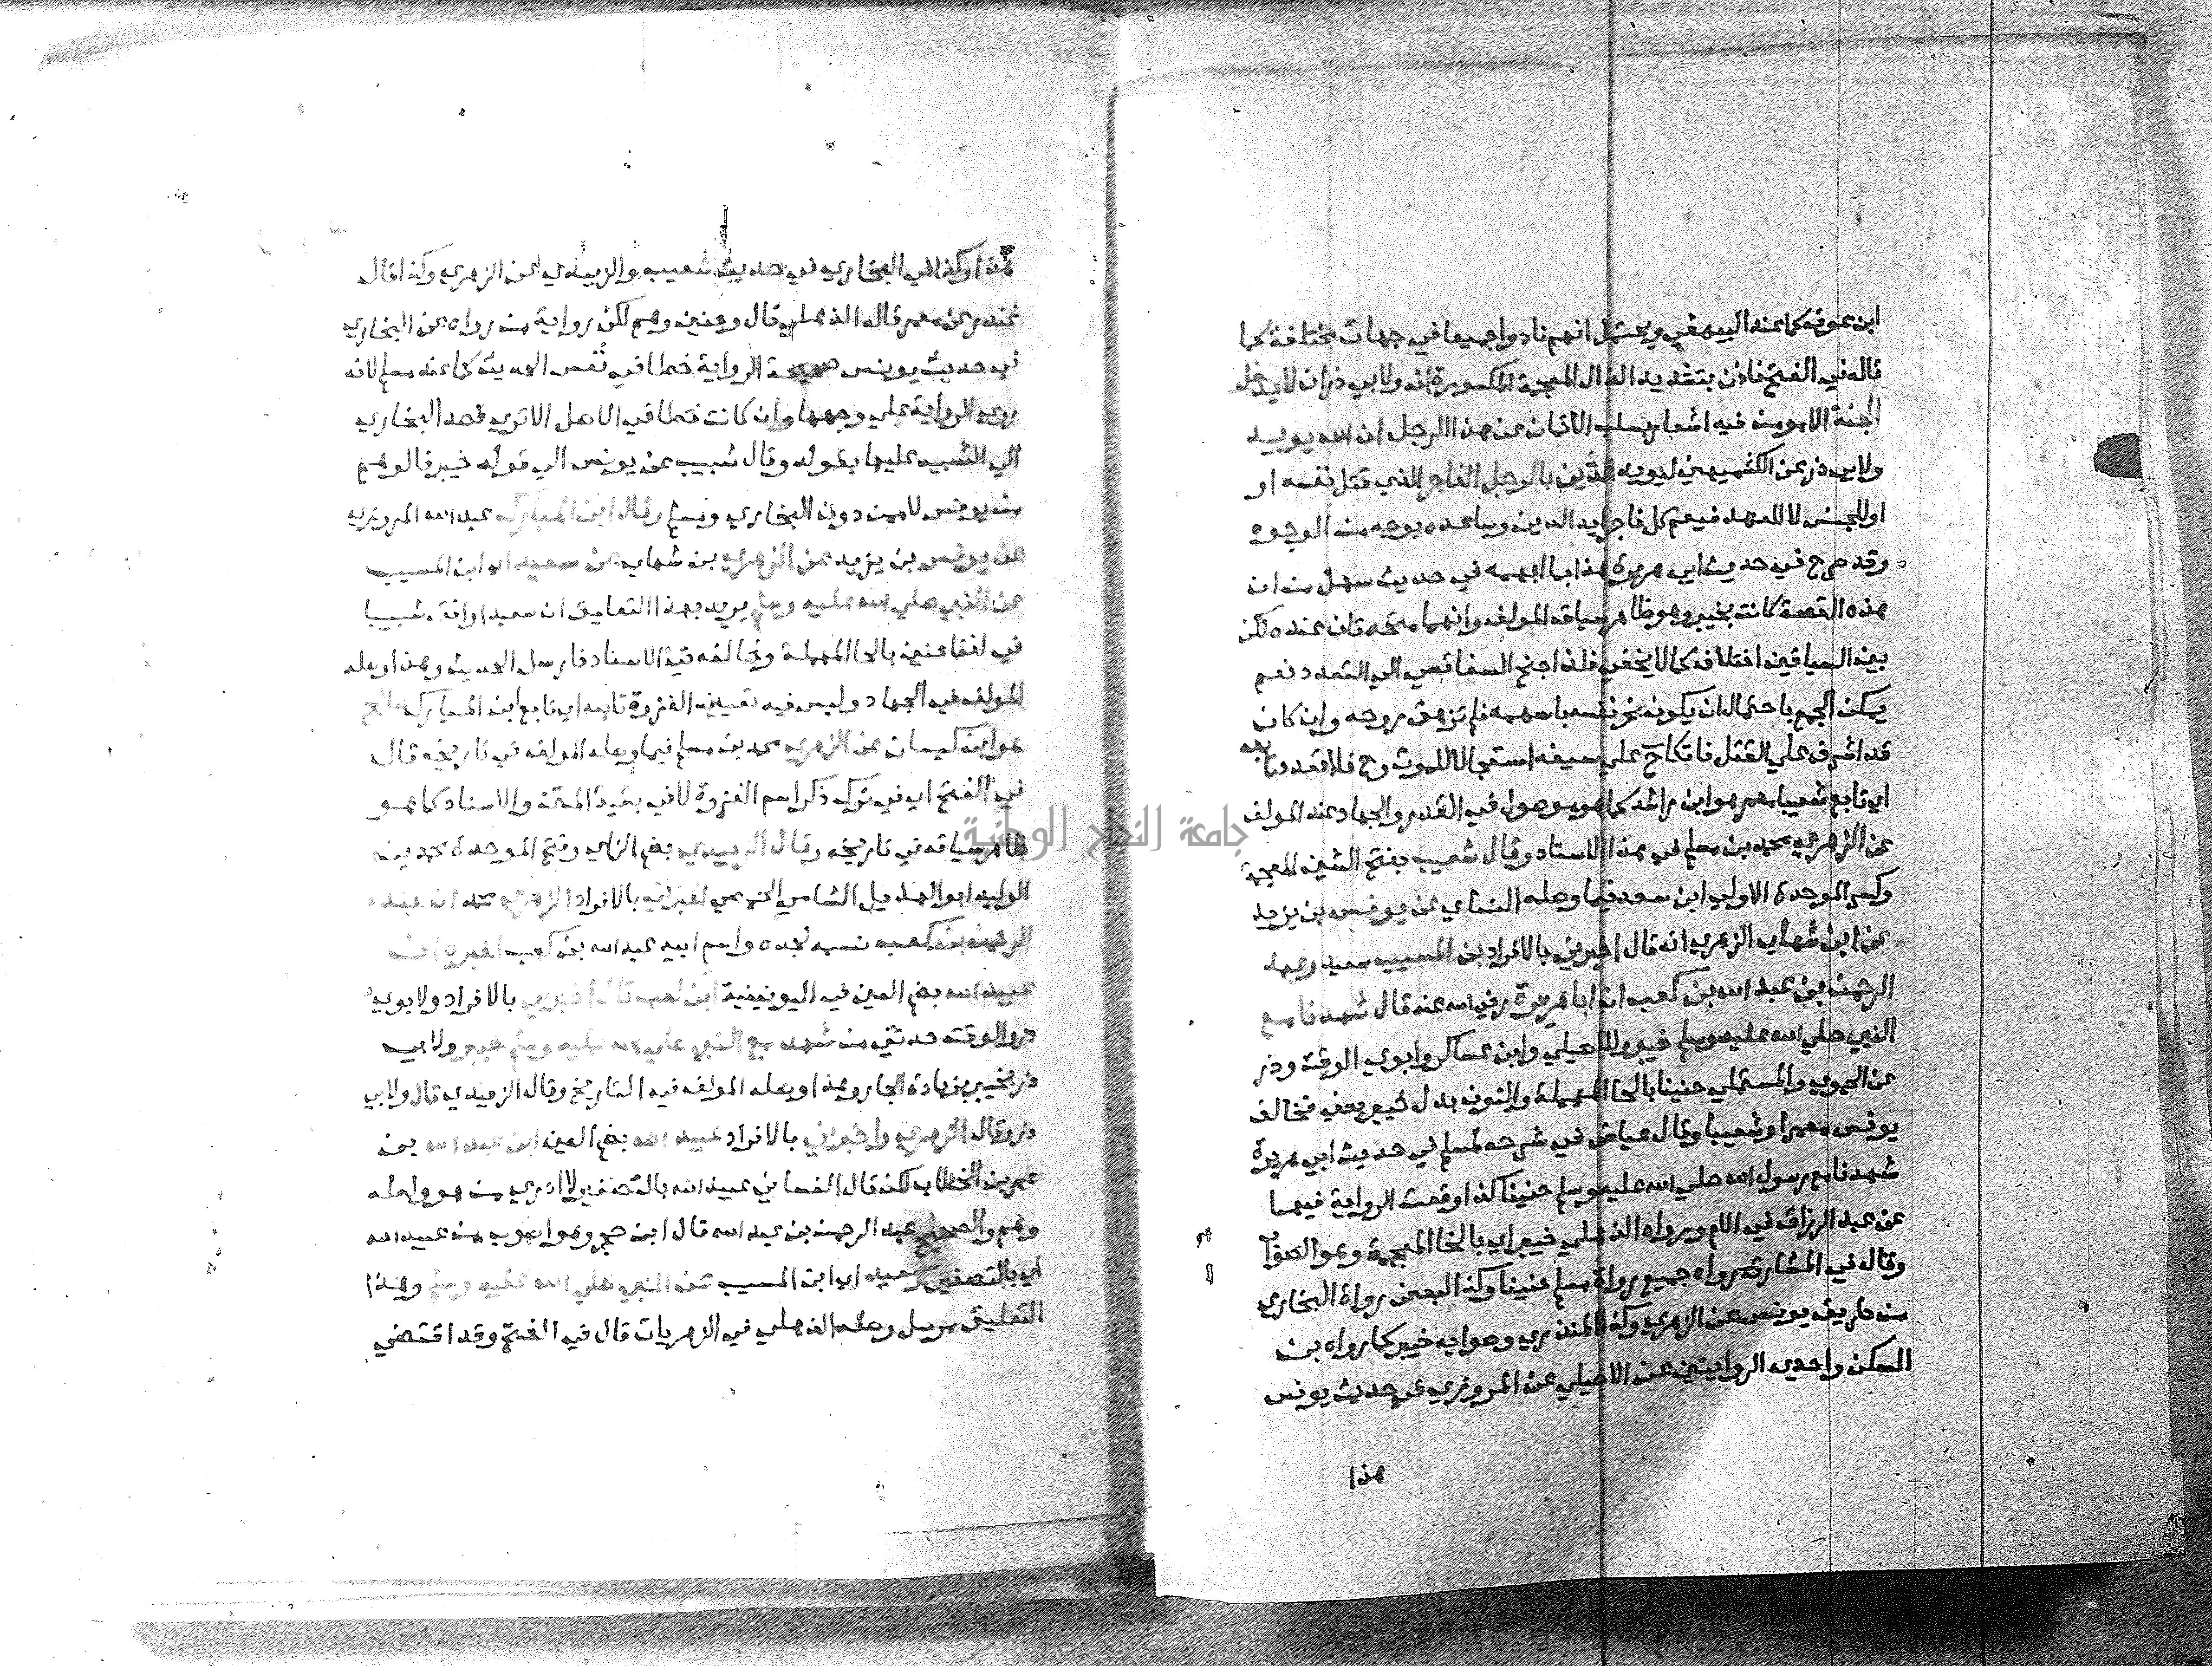 ابن عوف كما عند البيهقي ويحتمل انهم نادوا جميعا في جهات مختلفة كما
قاله في الفتح فاذن بتشديد الذال المعجمة المكسورة انه ولابي ذر ان لا يدخل
الجنة الا مومن فيه اشعار بسلب الايمان عن هذا الرجل ان الله يويد
ولابي ذر عن الكشميهني ليويد الدين بالرجل الفاجر الذي قتل نفسه او
او للجنس لا للعهد فيعم كل فاجر ايد الدين وساعده بوجه من الوجوه
وقد صرح في حديث ابي هريرة هذا بما ابهمه في حديث سهل من ان
هذه القصة كانت بخيبر وهو ظاهر سياق المولف وانهما متحدتان عنده لكن
بين السياقين اختلاف كما لا يخفي فلذا جنح السفاقسي الي التعدد نعم
يمكن الجمع باحتمال ان يكون نحر نفسه باسهمه فلم تزهق روحه وان كان
قد اشرف علي القتل فاتكا ح علي سيفه استعجالا للموت وح فلا تعدد تابعه
اي تابع شعيبا معمر هو ابن راشد كما هو موصول في القدر والجهاد عند المولف
عن الزهري محمد بن مسلم في هذا الاسناد وقال شعيب بفتح الشين المعجمة
وكسر الموحدة الاولي ابن سعد فيما وصله النسائي عن يونس بن يزيد
عن ابن شهاب الزهري انه قال اخبرني بالافراد بن المسيب سعيد وعبد
الرحمن بن عبد الله بن كعب ان ابا هريرة رضي الله عنه قال شهدنا مع
النبي صلي الله عليه وسلم خيبر وللاصيلي وابن عساكر وابوي الوقت وذر
عن الحموي والمستملي حنينا بالحا المهملة والنون بدل خيبر يعني فخالف
يونس معمرا وشعيبا وقال عياض في شرحه لمسلم في حديث ابي هريرة
شهدنا مع رسول الله صلي الله عليه وسلم حنينا كذا وقعت الرواية فيهما
عن عبد الرزاق في الام ورواه الذهلي خيبر اي بالخا المعجمة وهو الصواب
وقال في المشارق رواه جميع رواة مسلم حنينا وكذا لبعض رواة البخاري
من طريق يونس عن الزهري وكذا للمنذري وصوابه خيبر كما رواه بن
السكن واحدي الروايتين عن الاصيلي عن المروزي في حديث يونس
هذا
هذا وكذا في البخاري في حديث شعيب والزبيدي عن الزهري وكذا قال
عنده عن معمر قاله الذهلي قال وحنين وهم لكن رواية من رواه عن البخاري
في حديث يونس صحيحة الرواية خطا في نفس الحديث كما عند مسلم لانه
روي الرواية علي وجهها وان كانت خطا في الاصل الا تري قصد البخاري
الي التنبيه عليها بقوله وقال شبيب عن يونس الي قوله خيبر فالوهم
من يونس لا ممن دون البخاري ومسلم وقال ابن المبارك عبد الله المروزي
عن يونس بن يزيد عن الزهري بن شهاب عن سعيد اي ابن المسيب
عن النبي صلي الله عليه وسلم يريد بهذا التعليق ان سعيدا وافق شبيبا
في لفظ حنين بالحا المهملة وخالفه في الاسناد فارسل الحديث وهذا وصله
المولف في الجهاد وليس فيه تعيين الغزوة تابعه اي تابع ابن المبارك صالح
هو ابن كيسان عن الزهري محمد بن مسلم فيما وصله المولف في تاريخه قال
في الفتح اي في ترك ذكر اسم الغزوة لا في بقية المتن والاسناد كما هو
ظاهر سياقه في تاريخه وقال الزبيدي بضم الزاي وفتح الموحدة محمد بن
الوليد ابو الهذيل الشامي الحمصي اخبرني بالافراد الزهري محمد ان عبد
الرحمن بن كعب نسبه لجده واسم ابيه عبد الله بن كعب اخبره ان
عبيد الله بضم العين في اليونينية ابن كعب قال اخبرني بالافراد ولابوي
ذر والوقت حدثني من شهد مع النبي صلي الله عليه وسلم خيبر ولابي
ذر بخيبر بزيادة الجار وهذا وصله المولف في التاريخ وقال الزبيدي قال ولابي
ذر وقال الزهري واخبرني بالافراد عبيد الله بضم العين ابن عبد الله بن
عمر بن الخطاب لكن قال الغساني عبيد الله بالتصغير لا ادري من هو ولعله
وهم والصحيح عبد الرحمن بن عبد الله قال ابن حجر وهو اصوب من عبيد الله
اي بالتصغير وسعيد اي ابن المسيب عن النبي صلي الله عليه وسلم وهذا
التعليق مرسل وصله الذهلي في الزهريات قال في الفتح وقد اقتضي
جامعة النجاح الوطنية